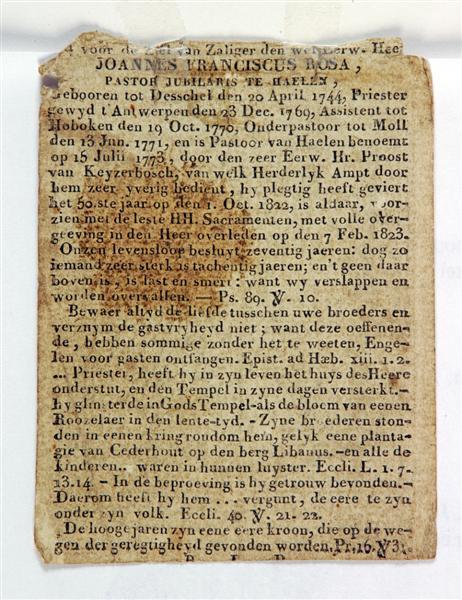 voor de Ziel van Zaliger den wel Eerw. Heer
JOANNES FRANCISCUS BOSA,
PASTOR JUBILARIS TE HAELEN,
Gebooren tot Desschel den 20 April 1744, Priester
gewyd t'Antwerpen den 23 Dec. 1769, Assistent tot
Hoboken den 19 Oct. 1770, Onderpastoor tot Moll
den 13 Jan. 1771, en is Pastoor van Haelen benoemt
op 15 Julii 1773, door den zeer Eerw. Hr. Proost
van Keyzerbosch, van welk Herderlyk Ampt door
hem zeer yverig bedient, hy plegtig heeft geviert
het 50.ste jaar op den 1. Oct. 1822, is aldaar, voor-
zien met de leste HH. Sacramenten, met volle over-
geeving in den Heer overleden op den 7 Feb. 1823.
Onzen levensloop besluyt zeventig jaeren: dog zo
iemand zeer sterk is tachentig jaeren; en 't geen daar
boven is, is last en smert: want wy verslappen en
worden overvallen. — Ps. 89. V. 10.
Bewaer altyd de liefde tusschen uwe broeders en
verzuym de gastvryheyd niet; want deze oeffenen-
de, hebben sommige zonder het te weeten, Enge-
len voor gasten ontfangen. Epist. ad Hæb. xiii. 1. 2.
... Priester, heeft hy in zyn leven het huys des Heere
onderstut, en den Tempel in zyne dagen versterkt.—
hy glinsterde in Gods Tempel als de bloem van eenen
Roozelaer in den lente-tyd. - Zyne broederen ston-
den in eenen kring rondom hem, gelyk eene planta-
gie van Cederhout op den berg Libanus. — en alle de
kinderen.. waren in hunnen luyster. Eccli. L. 1. 7.
13. 14. — In de beproeving is hy getrouw bevonden.—
Daerom heeft hy hem ... vergunt, de eere te zyn
onder zyn volk. Eccli. 40. V. 21. 22.
De hooge jaren zyn eene eere kroon, die op de we-
gen der geregtigheyd gevonden worden. Pr. 16. V 31.